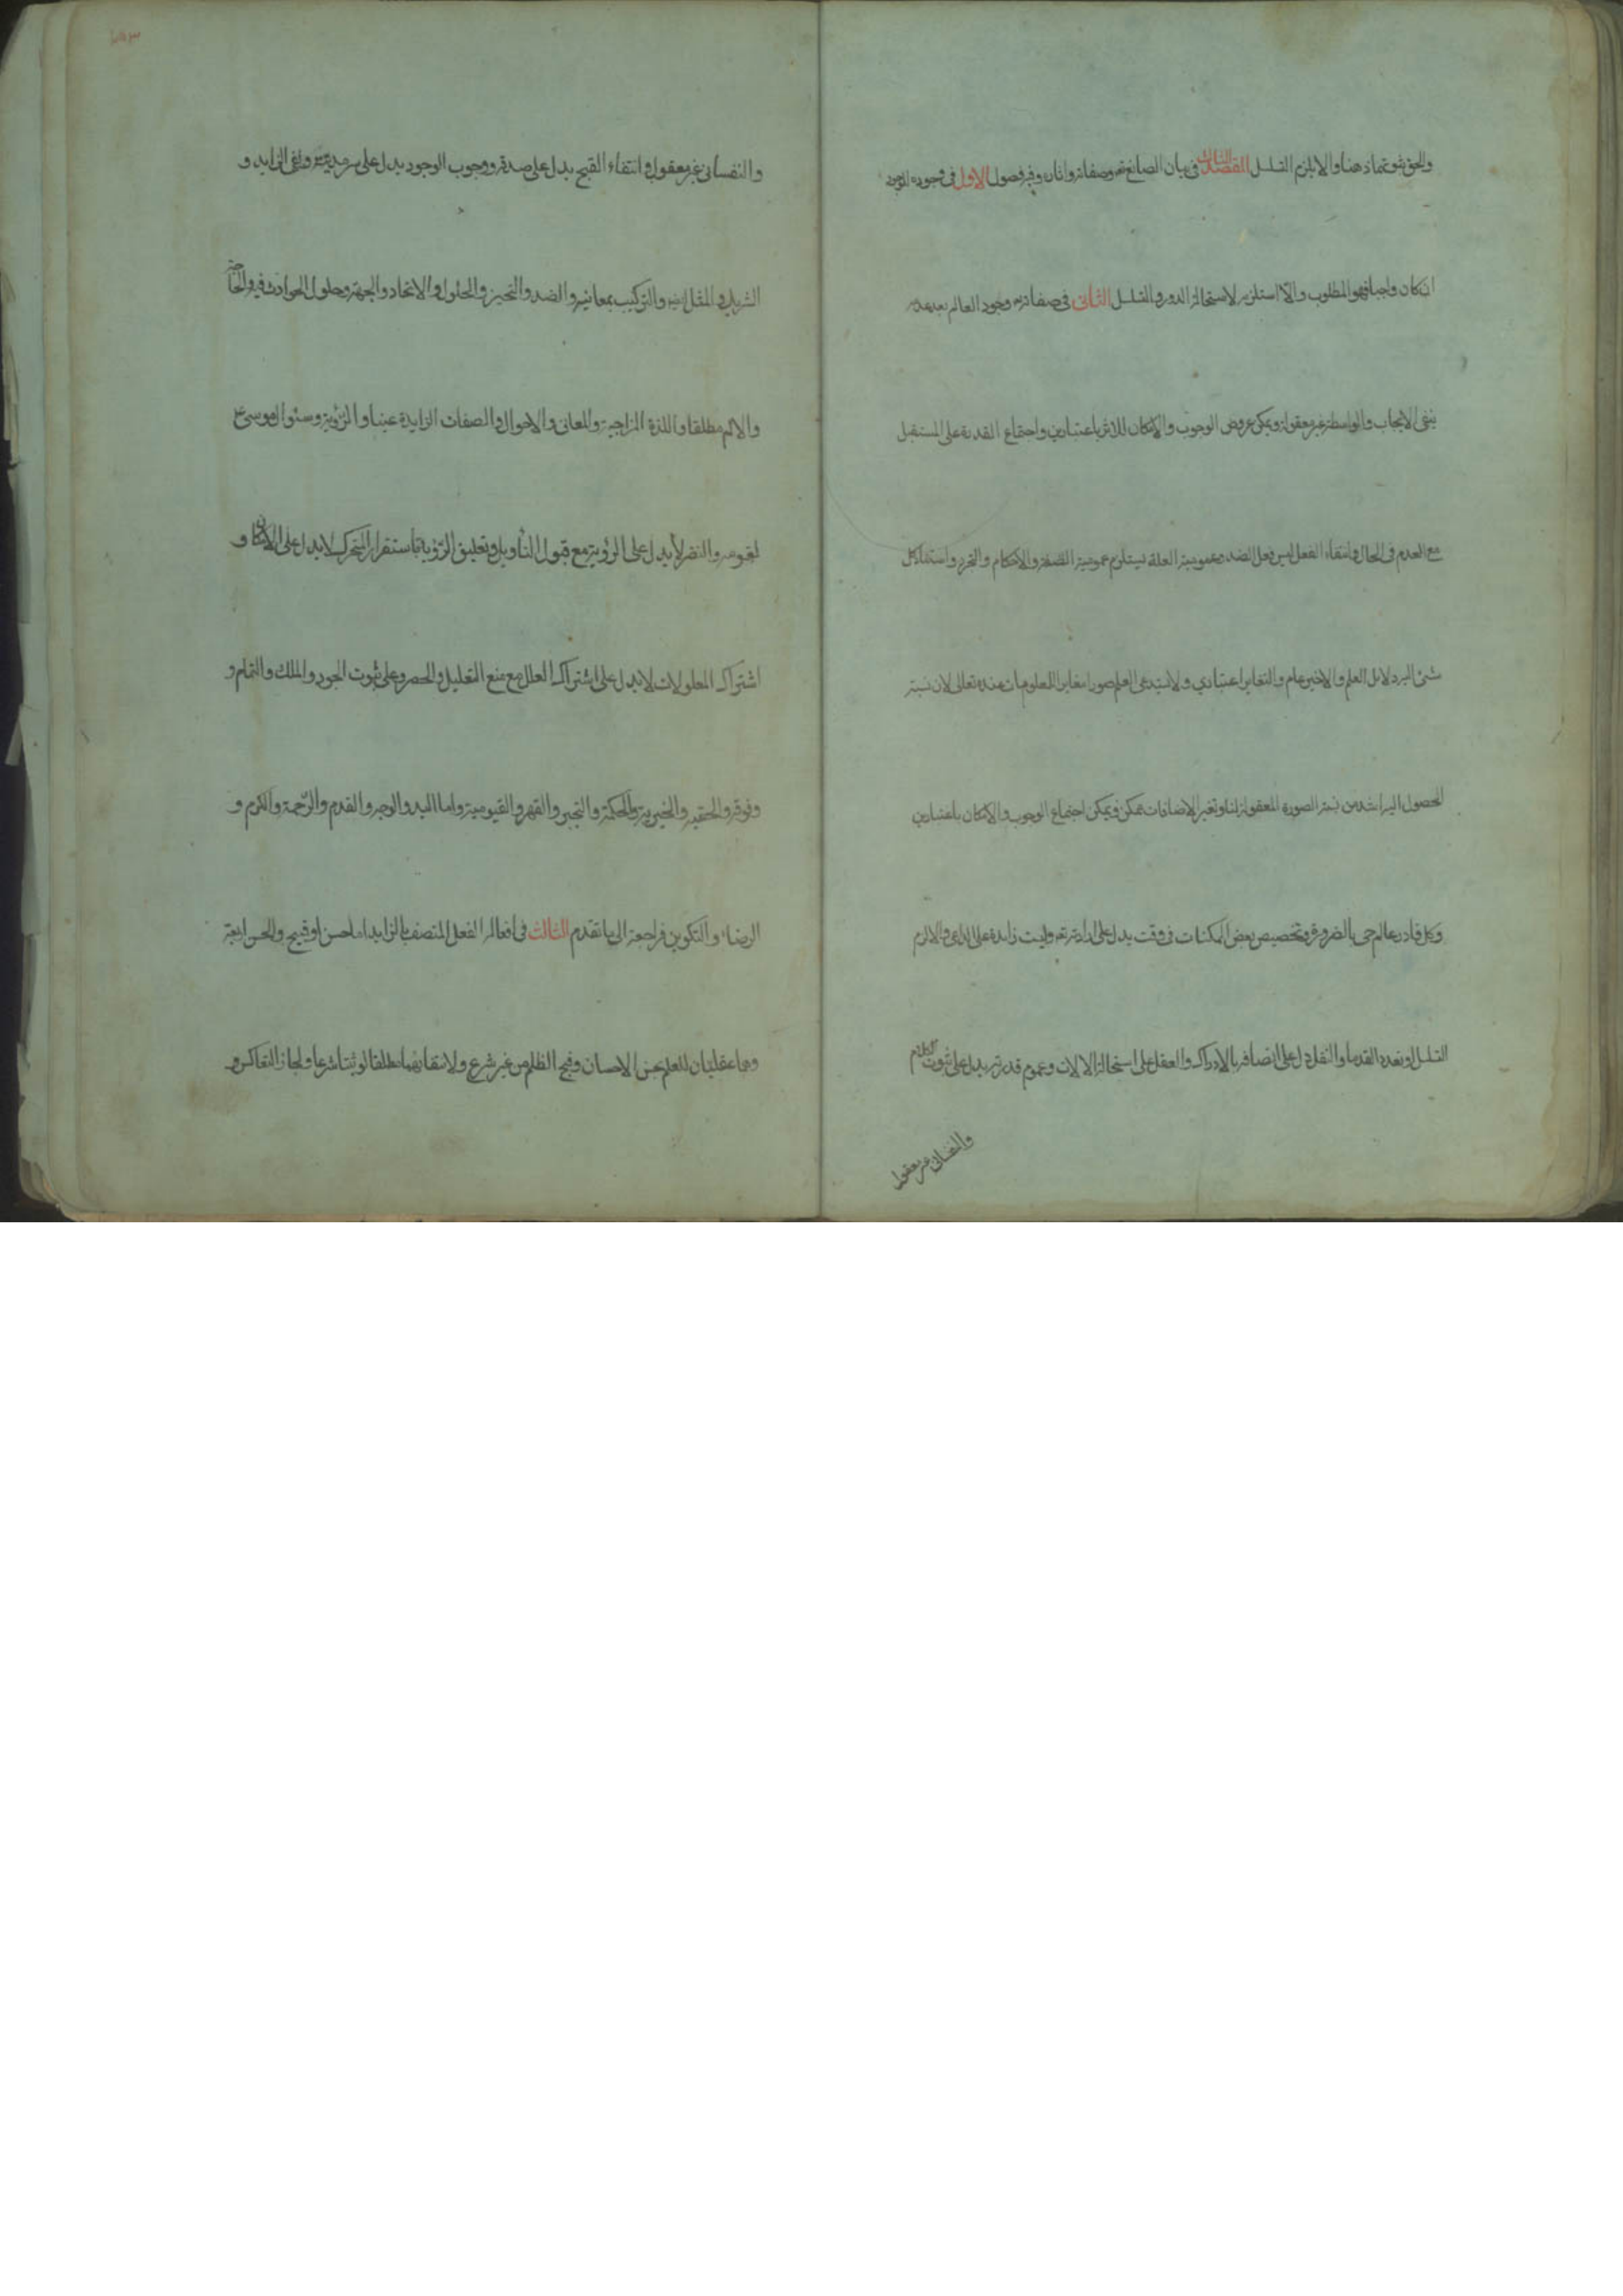 والحق ثبوتها ذهنا والا يلزم التسلسل المقصد الثالث في بيان الصانع تع وصفاته واثاره وفيه فصول الاول في وجوده الموجود
ان كان واجبا فهو المطلوب والا استلزمه لاستحالة الدور والتسلسل الثاني في صفاته وجود العالم بعد عدمه
ينفي الايجاب والواسطة غير معقولة ويمكن عروض الوجوب والامكان للاثر باعتبارين واجتماع القدرة على المستقبل
مع العدم في الحال وانتفاء الفعل ليس فعل الضد وعمومية العلة يستلزم عمومية الصفة والاحكام والتجرد واستناد كل
شئ اليه دلائل العلم والاخير عام والتغاير اعتباري ولا يستدعي العلم صورا مغايرا للمعلومات عنده تعالى لان نسبة
الحصول اليه اشد من نسبة الصورة المعقولة لنا وتغير الاضافات ممكن ويمكن اجتماع الوجوب والامكان باعتبارين
وكل قادر عالم حي بالضرورة وتخصيص بعض الممكنات في وقت يدل على ارادته تع وليست زايدة على الداعي والا لزم
التسلسل او تعدد القدماء والنقل دل على اتصافه بالادراك والعقل على استحالة الالات وعموم قدرته يدل على ثبوت الكلام
والنفساني غير معقول
والنفساني غير معقول وانتفاء القبيح يدل على صدقه ووجوب الوجود يدل على سرمديته ونفي الزايد و
الشريك والمثل والتركيب بمعانيه والضد والتحيز والحلول والاتحاد والجهة وحلول الحوادث فيه والحاجة
والالم مطلقا واللذة المزاجية والمعاني والاحوال والصفات الزايدة عينا والرؤية وسئوال موسى ع
لقومه والنظر لا يدل على الرؤية مع قبول التأويل وتعليق الرؤية باستقرار المتحرك لا يدل على الامكان و
اشتراك المعلولات لا يدل على اشتراك العلل مع منع التعليل والحصر وعلى ثبوت الجود والملك والتمام و
وفوقه والحقية والخيرية والحكمة والتجبر والقهر والقيومية واما اليد والوجه والقدم والرحمة والكرم و
الرضاء والتكوين فراجعة الى ما تقدم الثالث في افعاله الفعل المتصف بالزايد اما حسن او قبيح والحسن اربعة
وهما عقليان للعلم بحسن الاحسان وقبح الظلم من غير شرع ولانتفائهما مطلقا لو ثبتا شرعا ولجاز التعاكس و